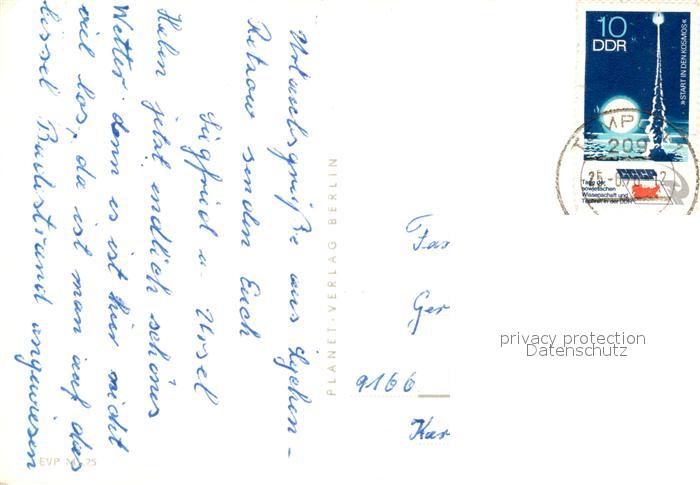 Urlaubsgrüße aus Lychen-
Retzow senden Euch
Siegfried u. Ursel
Haben jetzt endlich schönes
Wetter denn es ist hier nicht
viel los, da ist man auf das
bissel Badestrand angewiesen
PLANET-VERLAG BERLIN
EVP
25
10
DDR
»START IN DEN KOSMOS«
Tage der
sowjetischen
Wissenschaft und
Technik in der DDR
209
Fam
Ger
9166
Kar
privacy protection
Datenschutz